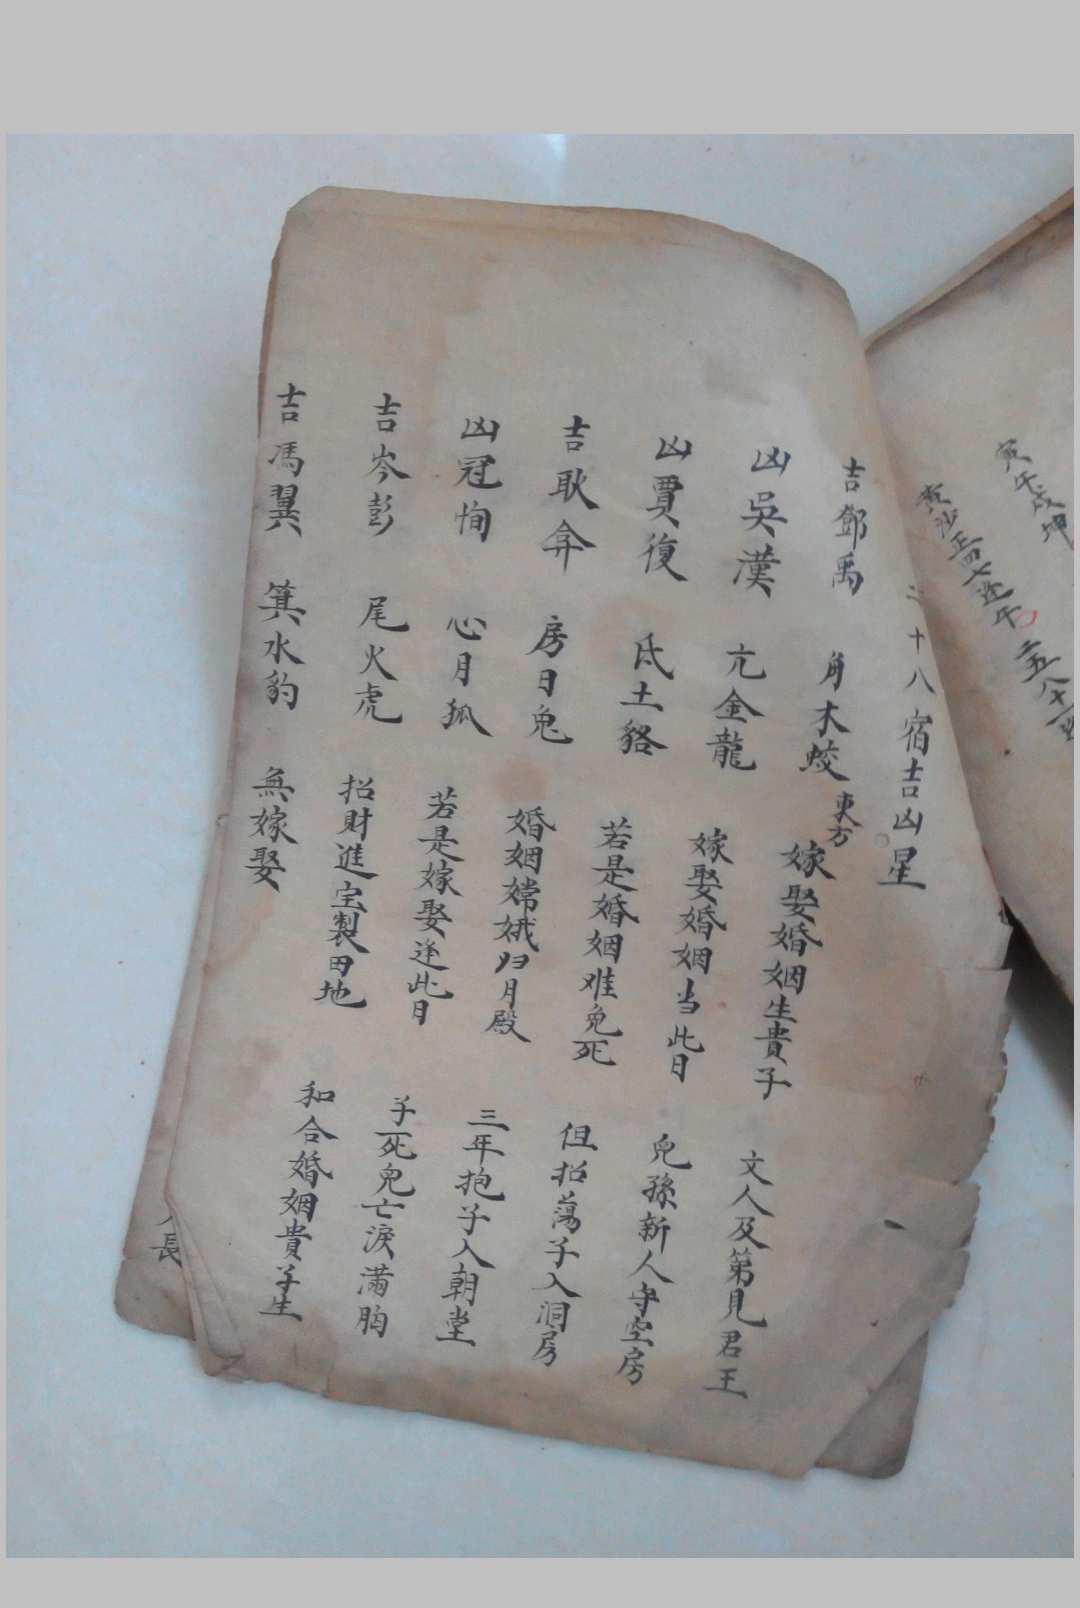 二十八宿吉凶星
吉鄧禹 角木蛟 東方 嫁娶婚姻生貴子 文人及第見君王
凶吳漢 亢金龍 嫁娶婚姻当此日 兒孫新人守空房
凶賈復 氐土貉 若是婚姻难免死 但招蕩子入洞房
吉耿弇 房日兔 婚姻嫦娥归月殿 三年抱子入朝堂
凶冠恂 心月狐 若是嫁娶逢此日 子死兒亡淚滿胸
吉岑彭 尾火虎 招財進宝製田地 和合婚姻貴子生
吉馮翼 箕水豹 無嫁娶
寅午戌坤
長